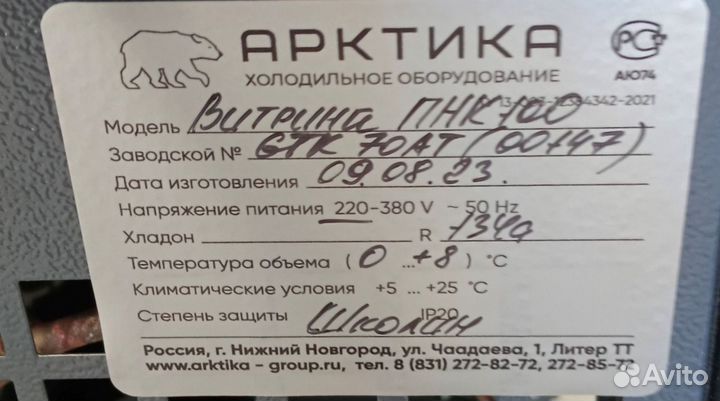 АРКТИКА
ХОЛОДИЛЬНОЕ ОБОРУДОВАНИЕ
РС
АЮ74
4342-2021
Модель Витрина ПНК 100
Заводской № GTK 70AT (00147)
Дата изготовления 09.08.23.
Напряжение питания 220-380 V ~ 50 Hz
Хладон R 134a
Температура объема ( 0 ... +8 ) °C
Климатические условия +5 ... +25 °C
Степень защиты IP20
Россия, г. Нижний Новгород, ул. Чаадаева, 1, Литер ТТ
www.arktika - group.ru, тел. 8 (831) 272-82-72, 272-85-72
Avito